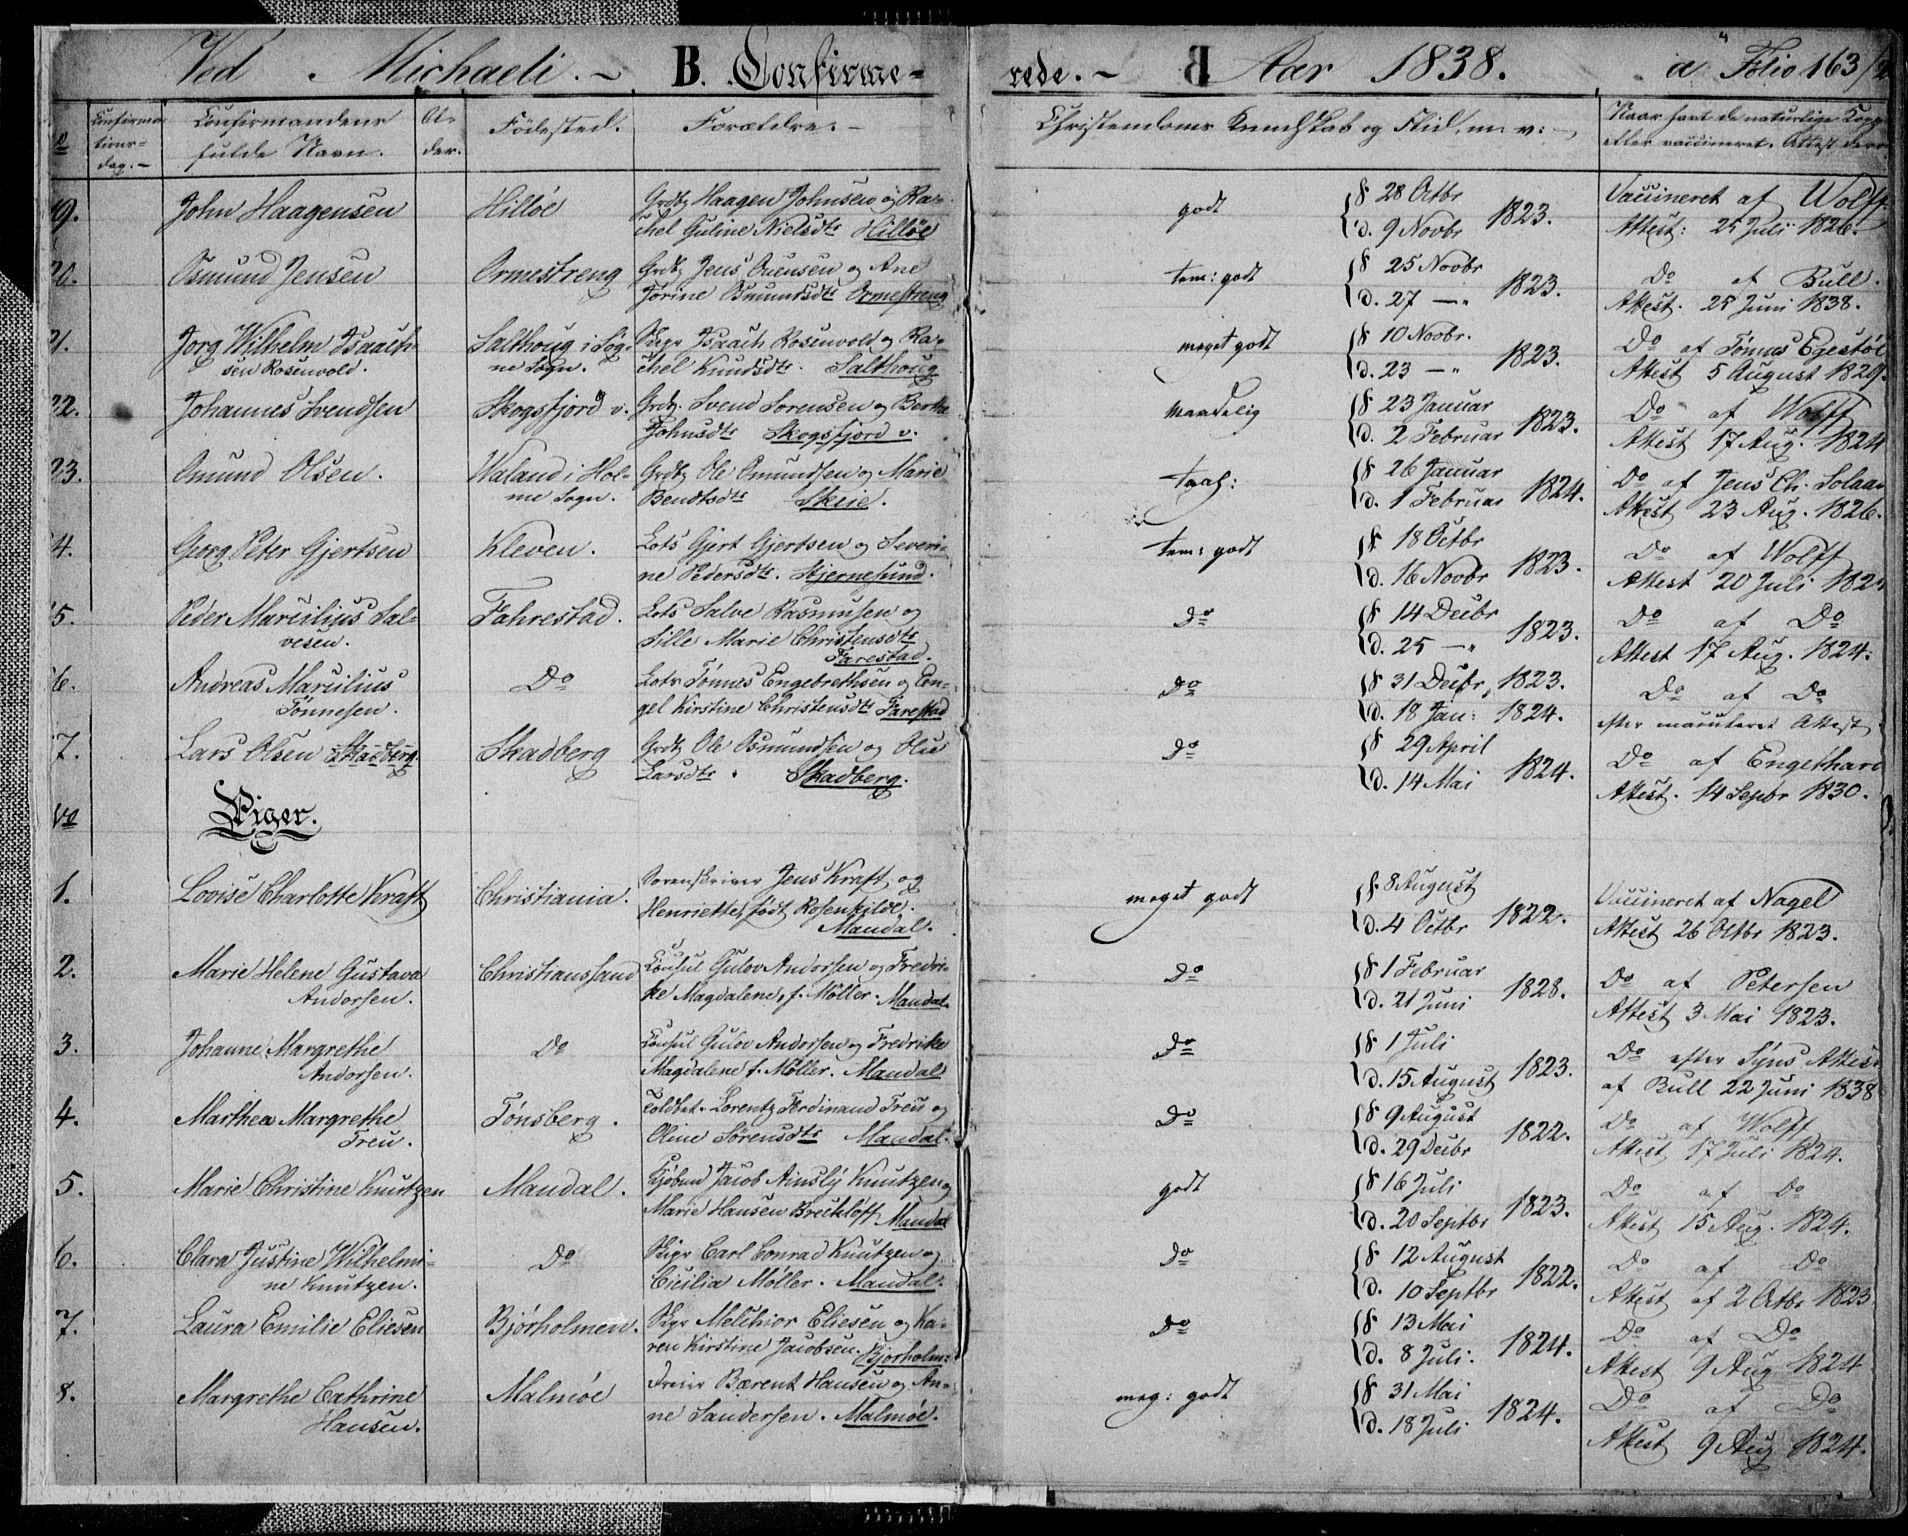 Ved Michaeli. - B. Confirme= rede. - Aar 1838. a Folio 163/
Confirma
tions=
dag. -
Confirmandens
fulde Navn.
Al-
der.
Födested.
Forældre. -
Christendoms Kundskab og Flid, m. v: -
Naar havt de naturlige Kop
eller vaccineret. Attest der
19. John Haagensen Hilløe Grdbg Haagen Johnsen og Ra-
chel Guline Nielsdtr Hilløe
godt f 28 Octbr
d. 9 Novbr 1823.
Vaccineret af Wolff
Attest: 25 Juli 1826.
20. Osmund Jensen Ormestreng Grdbg Jens Ouensen og Ane
Torine Osmundsdtr Ormestreng
tem: godt f 25 Novbr
d. 27 —" 1823.
Do af Bull.
Attest. 25 Juni 1838.
21. Jörg Wilhelm Isaach-
sen Rosenvold.
Salthoug i Sog-
ne Sogn.
Skpr Isaach Rosenvold og Ra-
chel Knudsdtr. Salthoug
meget godt f 10 Novbr.
d. 23 —" 1823.
Do af Tønnes Egestøl
Attest 5 August 1829.
22. Johannes Svendsen Skogsfjord v. Grdbg. Svend Sorensen og Berthe
Johnsdtr Skogsfjord v.
maadelig f 23 Januar
d. 2 Februar 1823.
Do af Wolff
Attest 17 Aug. 1824
23. Omund Olsen. Waland i Hol-
me Sogn.
Grdbg Ole Omundsen og Marie
Bendtsdtr Skeie.
f 26 Januar
d. 1 Februar 1824.
Do af Jens Ch. Solaa
Attest 23 Aug. 1826.
4. Georg Peter Gjertsen Kleven. Lots Gjert Gjertsen og Severi-
ne Pedersdtr. Stjernesund.
tem: godt f 18 Octbr
d. 16 Novbr 1823.
Do af Wolff
Attest 20 Juli 182
5. Peder Marcilius Sal-
vesen.
Fahrestad. Lots Salve Rasmusen og
Sille Marie Christensdtr
Farestad.
Do f 14 Decbr
d. 25 —" 1823.
Do af Do
Attest 17 Aug. 1824.
6. Andreas Marcilius
Tönnesen.
Do Lots Tönnes Engebrethsen og En-
gel Kirstine Christensdtr Farestad
Do f 31 Decbr, 1823.
d. 18 Jan: 1824.
Do af Do
efter Attest
7. Lars Olsen Skadberg. Skadberg Grdbg Ole Osmundsen og Olie
Larsdtr. Skadberg.
Do f 29 April
d. 14 Mai 1824.
Do af Engelhard
Attest. 14 Sepbr 1830.
No Piger.
1. Lovise Charlotte Kraft Christiania. Sorenskriver Jens Kraft og
Henriette, født Rosenkilde.
Mandal.
meget godt f. 8 August
d. 4 Octbr 1822.
Vaccineret af Nagel
Attest 26 Octbr 1823.
2. Marie Helene Gustava
Andorsen.
Christianssand Consul Gulov Andorsen og Fredri-
ke Magdalene, f. Möller. Mandal.
Do f 1 Februar
d. 21 Juni 1828.
Do af Petersen
Attest 3 Mai 1823.
3. Johanne Margrethe
Andorsen.
Do Consul Gulov Andorsen og Fredrike
Magdalene f. Möller. Mandal
Do f 1 Juli
d. 15 August 1823.
Do efter Syns Attest
af Bull 22 Juni 1838
4. Marthea Margrethe
Treu.
Tønsberg. Toldbet. Lorentz Ferdinand Treu og
Oline Sørensdtr Mandal.
Do f 9 August
d. 29 Decbr 1822.
Do af Wolff
Attest 17 Juli 1824.
5. Marie Christine Knutzen Mandal. Kjøbmd Jacob Ainsly Knutzen og
Marie Hansen Breckløff Mandal
godt f 16 Juli
d. 20 Septbr 1823.
Do af Do
Attest 15 Aug. 1824.
6. Clara Justine Wilhelmi-
ne Knutzen.
Do Skpr Carl Conrad Knutzen og
Cicilia Møller. Mandal.
Do f 12 August
d. 10 Septbr 1822.
Do af Do
Attest af 2 Octbr 1823
7. Laura Emilie Eliesen Bjørholmen. Skpr Melchior Eliesen og Ka-
ren Kirstine Jacobsen. Bjørholm:
Do f 13 Mai
d. 8 Juli. 1824.
Do af Do
Attest 9 Aug 1824
8. Margrethe Cathrine
Hansen.
Malmøe Bærent Hansen og An-
ne Sandersen. Malmøe.
meg: godt f 31 Mai
d. 18 Juli 1824.
Do af Do
Attest 9 Aug 1824.